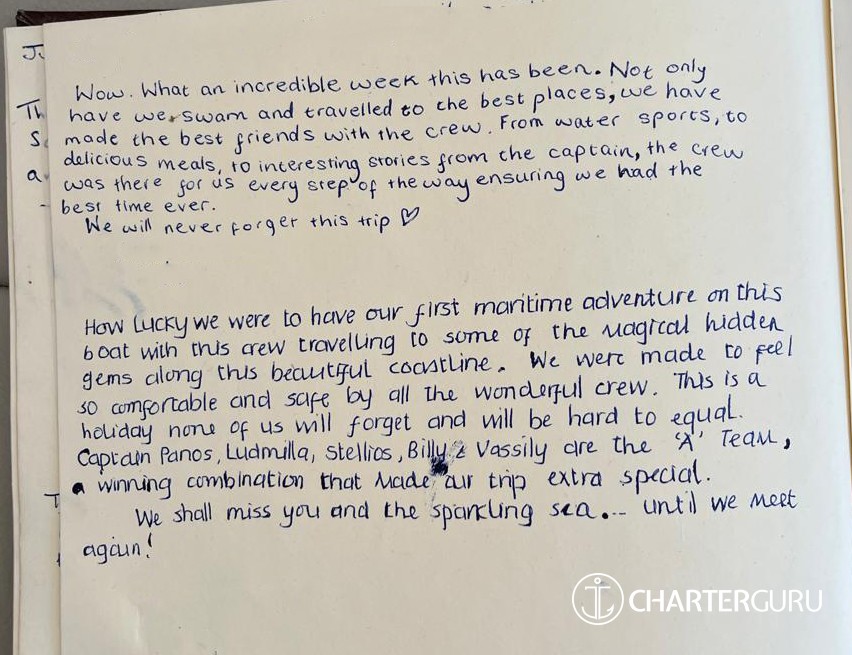 Ju
Th
S
a
Wow. What an incredible week this has been. Not only
have we swam and travelled to the best places, we have
made the best friends with the crew. From water sports, to
delicious meals, to interesting stories from the captain, the crew
was there for us every step of the way ensuring we had the
best time ever.
We will never forget this trip ♡
How lucky we were to have our first maritime adventure on this
boat with this crew travelling to some of the magical hidden
gems along this beautiful coastline. We were made to feel
so comfortable and safe by all the wonderful crew. This is a
holiday none of us will forget and will be hard to equal.
Captain Panos, Ludmilla, Stellios, Billy & Vassily are the 'A' Team,
a winning combination that made our trip extra special.
We shall miss you and the sparkling sea... until we meet
again!
T
CHARTERGURU